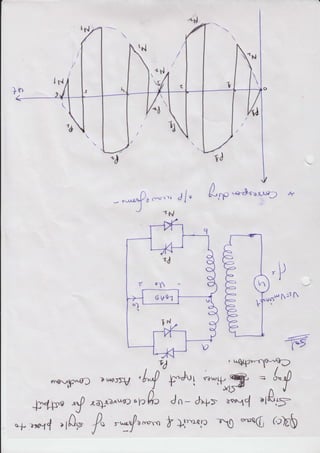 Q3(C) Draw the circuit & waveforms of single phase to
single phase step-up cycloconverter for output
freq = six times input freq. Assume continuous
Conduction.
Sol
P1
N1
a
Vs=Vm sinωt
LOAD
Vo
P2
b
N2
* Corresponding o/p waveforms -
P1 P1 P2 P2
N2 N2 N1 N1
0
ωt